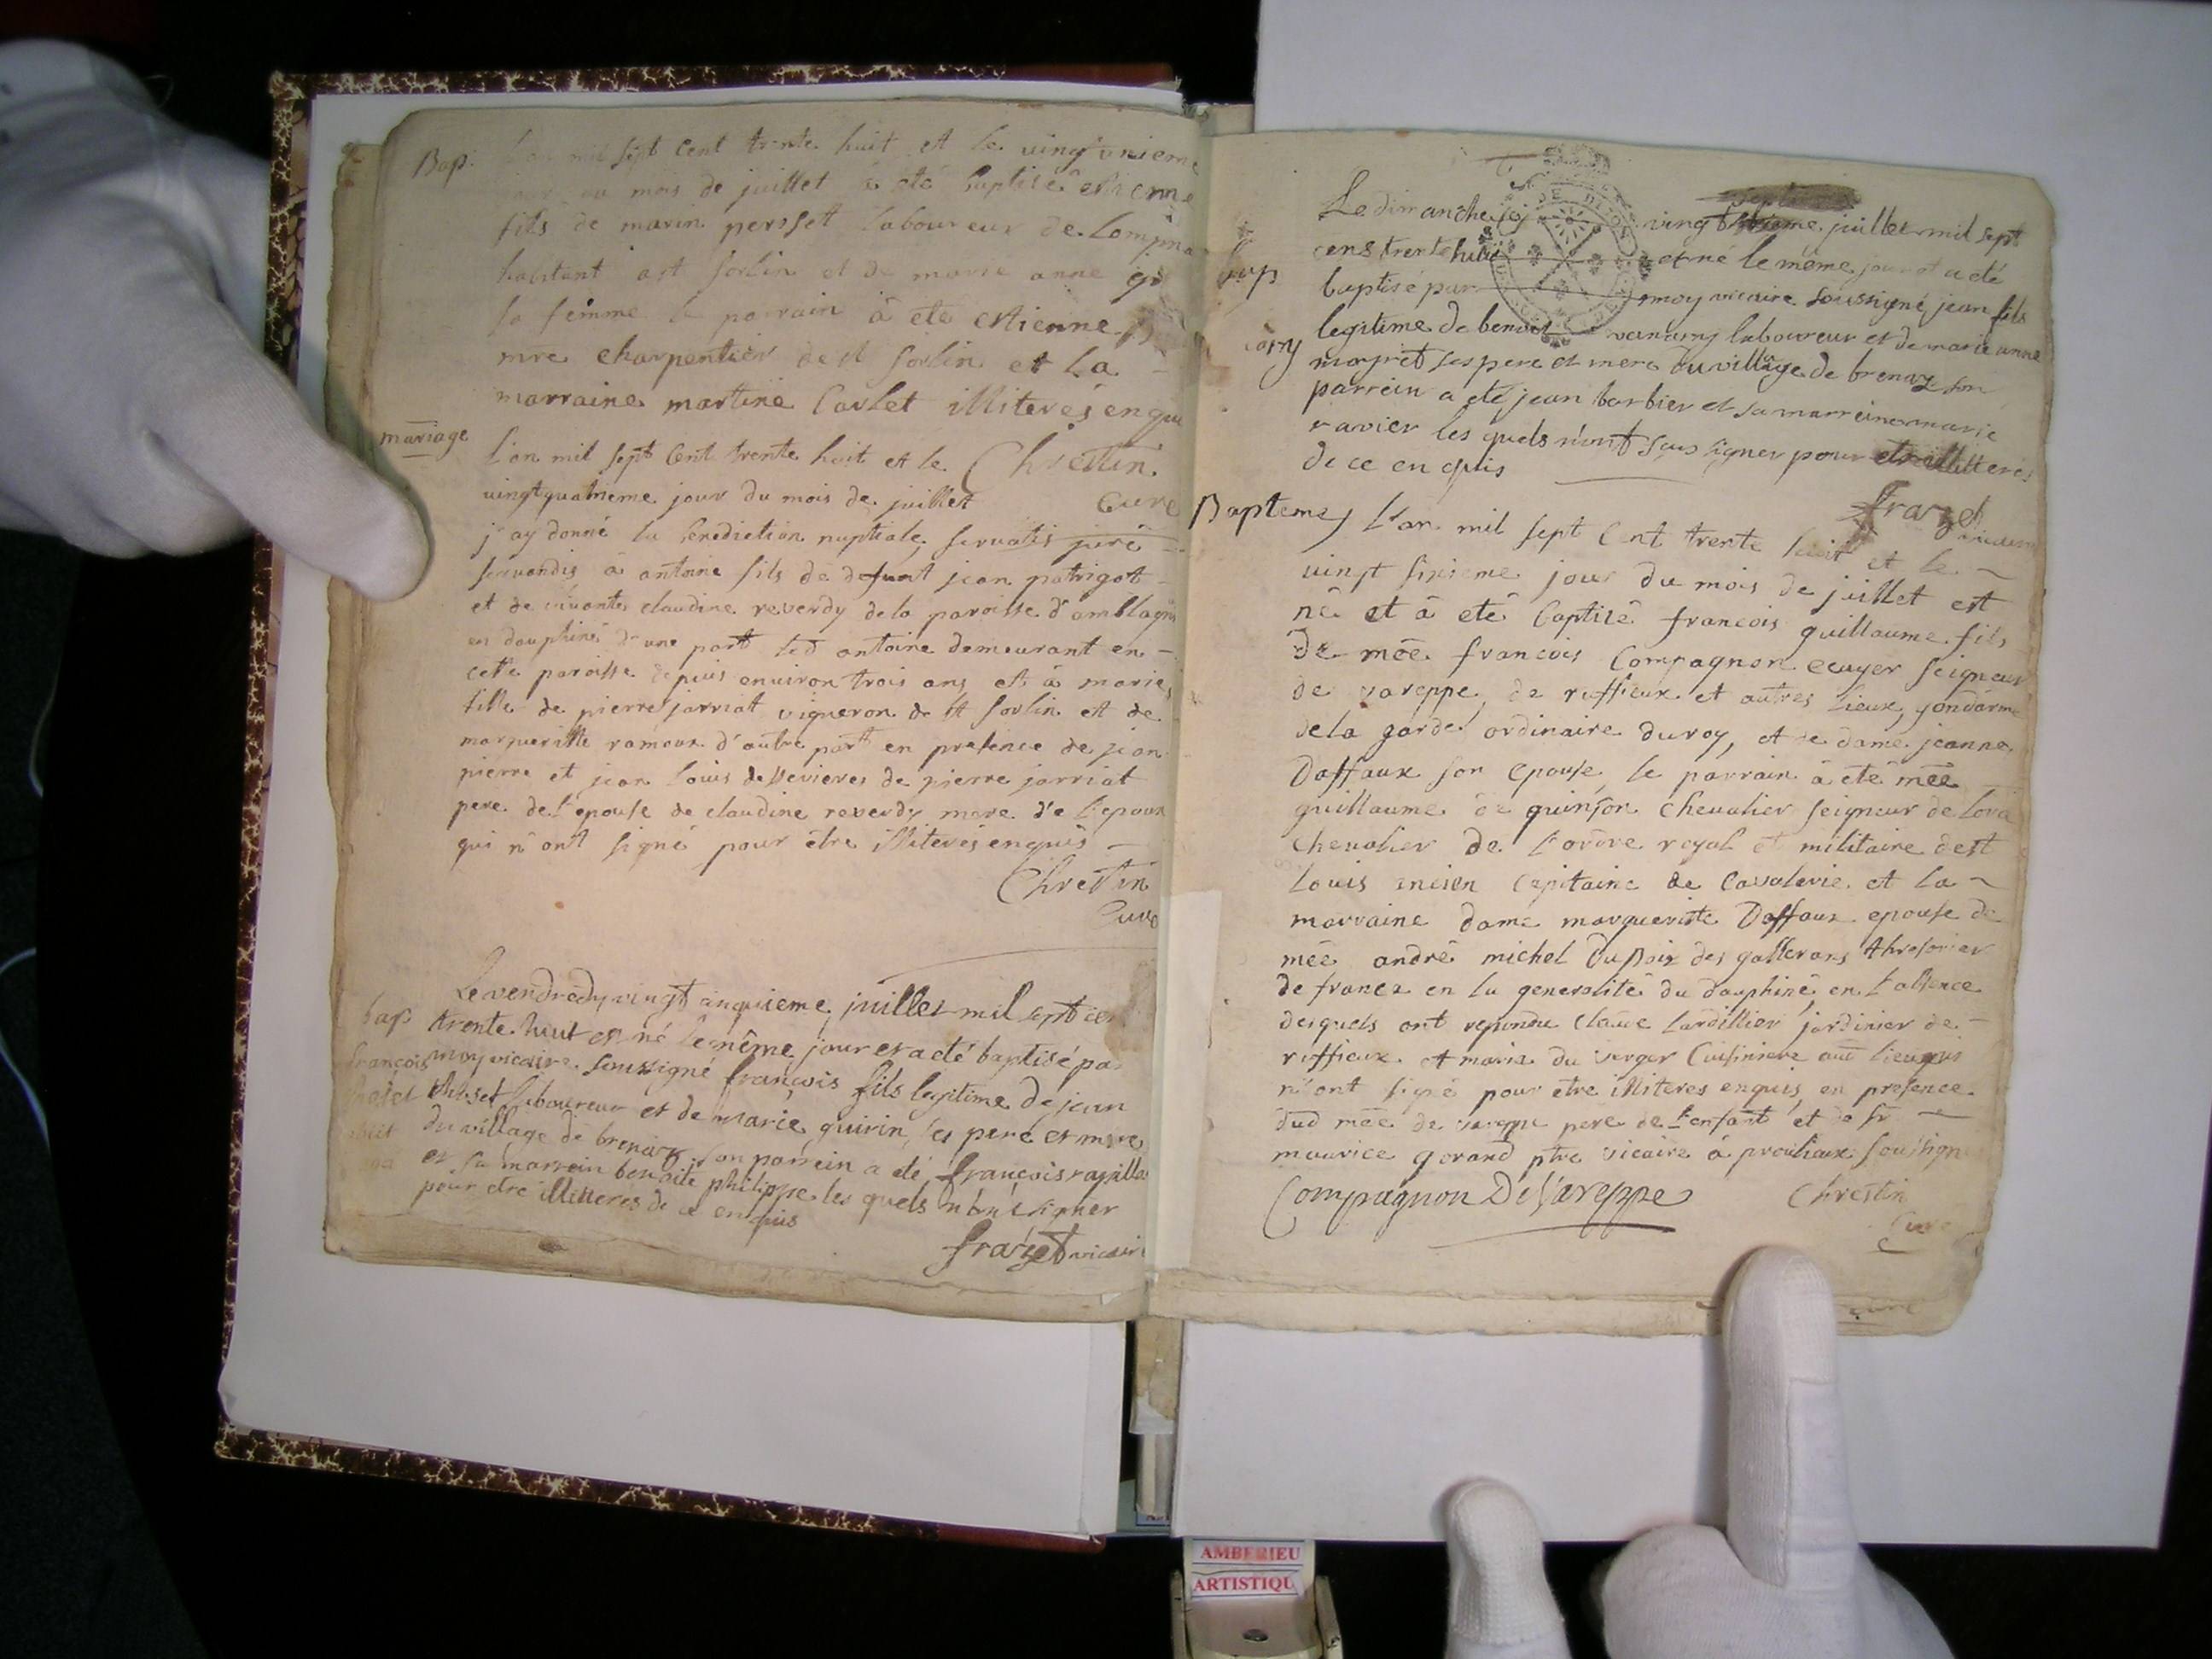 Bap. L'an mil sept Cent trente huit et le vingt unieme
jour du mois de juillet à eté baptisé estienne
fils de marin persset laboureur de Lompna
habitant a st sorlin et de marie anne
sa femme le parrain à eté estienne
mre charpentier de st sorlin et la
marraine martine Carlet illiterés enquis
mariage
l'an mil sept Cent trente huit et le Chrestin
vingt quatrieme jour du mois de juillet Curé
j'ay donné la benediction nuptiale, servatis jure
servandis à antoine fils de defunt jean patrigot
et de vivante claudine reverdy de la paroisse d'amblagni
en dauphiné d'une part led antoine demeurant en
cette paroisse depuis environ trois ans et à marie
fille de pierre jarriat vigneron de st sorlin et de
margueritte rameau d'autre part en presence de jean
pierre et jean louis de pierre jarriat
pere de l'epouse de claudine reverdy mere de l'epoux
qui n'ont signé pour être illiterés enquis
Chrestin
Curé
Le vendredy vingt cinquieme juillet mil sept cen
bap trente huit est né le même jour et a eté baptisé par
françois moy vicaire soussigné françois fils legitime de jean
laboureur et de marie guirin ses pere et mere
du village de brenaz son parrein a eté françois
et sa marrein benoite philippe les quels n'ont signer
pour etre illiteres de ce enquis
frazet vicaire
Le dimanche vingt septieme juillet mil sept
cens trente huit est né le même jour et a eté
bap baptisé par moy vicaire soussigné jean fils
legitime de benoit laboureur et de marie anne
ses pere et mere du village de brenaz son
parrein a eté jean barbier et sa marreine marie
ravier les quels n'ont sçus signer pour etre illiteres
de ce enquis
frazet
Bapteme L'an mil sept Cent trente huit et le
vingt sixieme jour du mois de juillet est
né et à eté baptisé francois guillaume fils
de mée francois Compagnon ecuyer seigneur
de vareppe, de ruffieux et autres lieux, gondarme
de la garde ordinaire du roy, et de dame jeanne
Daffaux son epouse, le parrain à eté mée
guillaume de quinson chevalier seigneur de
chevalier de l'ordre royal et militaire de st
louis encien Capitaine de Cavalerie et la
marraine dame marguerite Daffaux epouse de
mée andré michel Dupoix des galterans thresorier
de france en la generalité du dauphiné, en l'absence
desquels ont repondu claude lardillier jardinier de
ruffieux et maria du verger Cuisiniere aud lieu qui
n'ont signé pour etre illiteres enquis, en presence
dud mée de vareppe pere de l'enfant et de sr
maurice gerand ptre vicaire à proulieux soussigné
Compagnon De Vareppe Chrestin
Curé
curé
AMBERIEU
ARTISTIQU